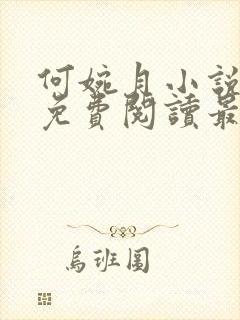 何婉月小說
免費閱讀最
烏班圖